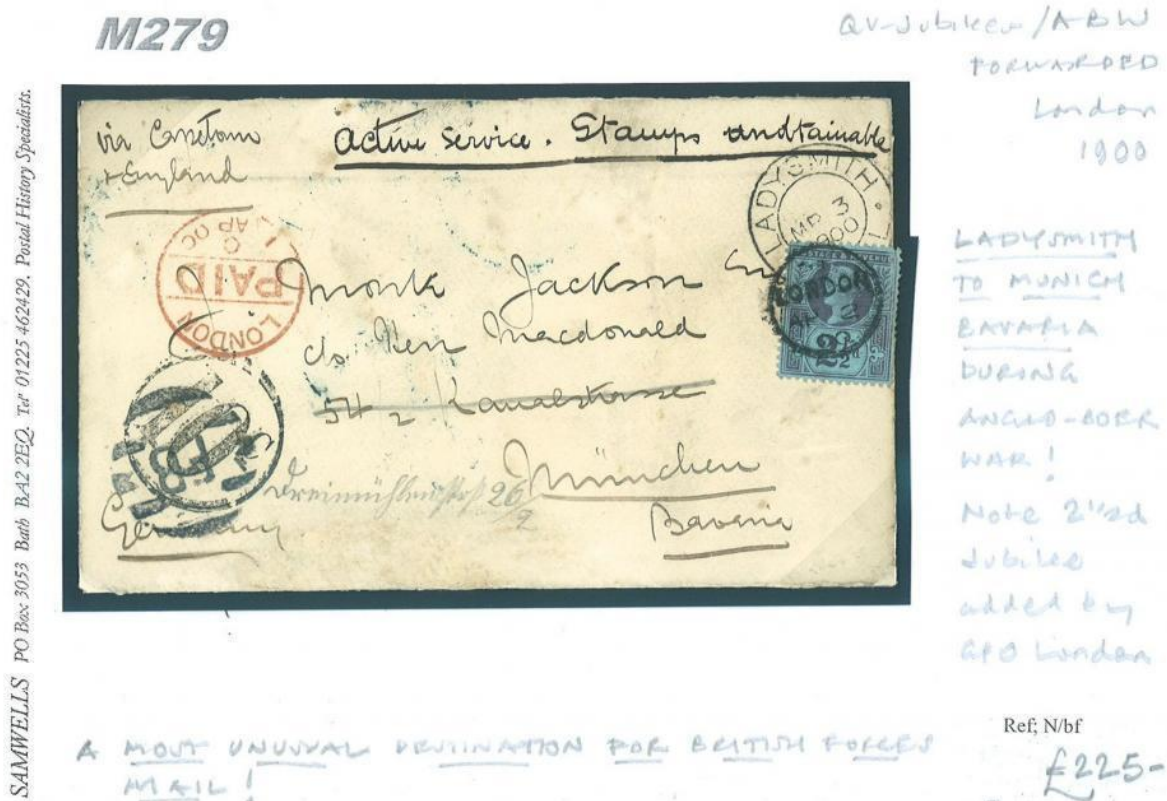 M279
QV-Jubilee /ABW
FORWARDED
London
1900
SAMWELLS PO Box 3053 Bath BA2 2EQ. Tel' 01225 462429. Postal History Specialists.
via Capetown
+ England
Active Service. Stamps undtainable
LADYSMITH
MR 3
1900
LONDON
PAID
AP 00
LONDON
2½
Monk Jackson Esq
c/o Herr Macdonald
54 2 Kanalstrasse
Dreimühlenstr 26/2
München
Germany
Bavaria
LADYSMITH
TO MUNICH
BAVARIA
DURING
ANGLO-BOER
WAR!
Note 2½d
Jubilee
added by
GPO London
A MOST UNUSUAL DESTINATION FOR BRITISH FORCES
MAIL!
Ref; N/bf
£225-